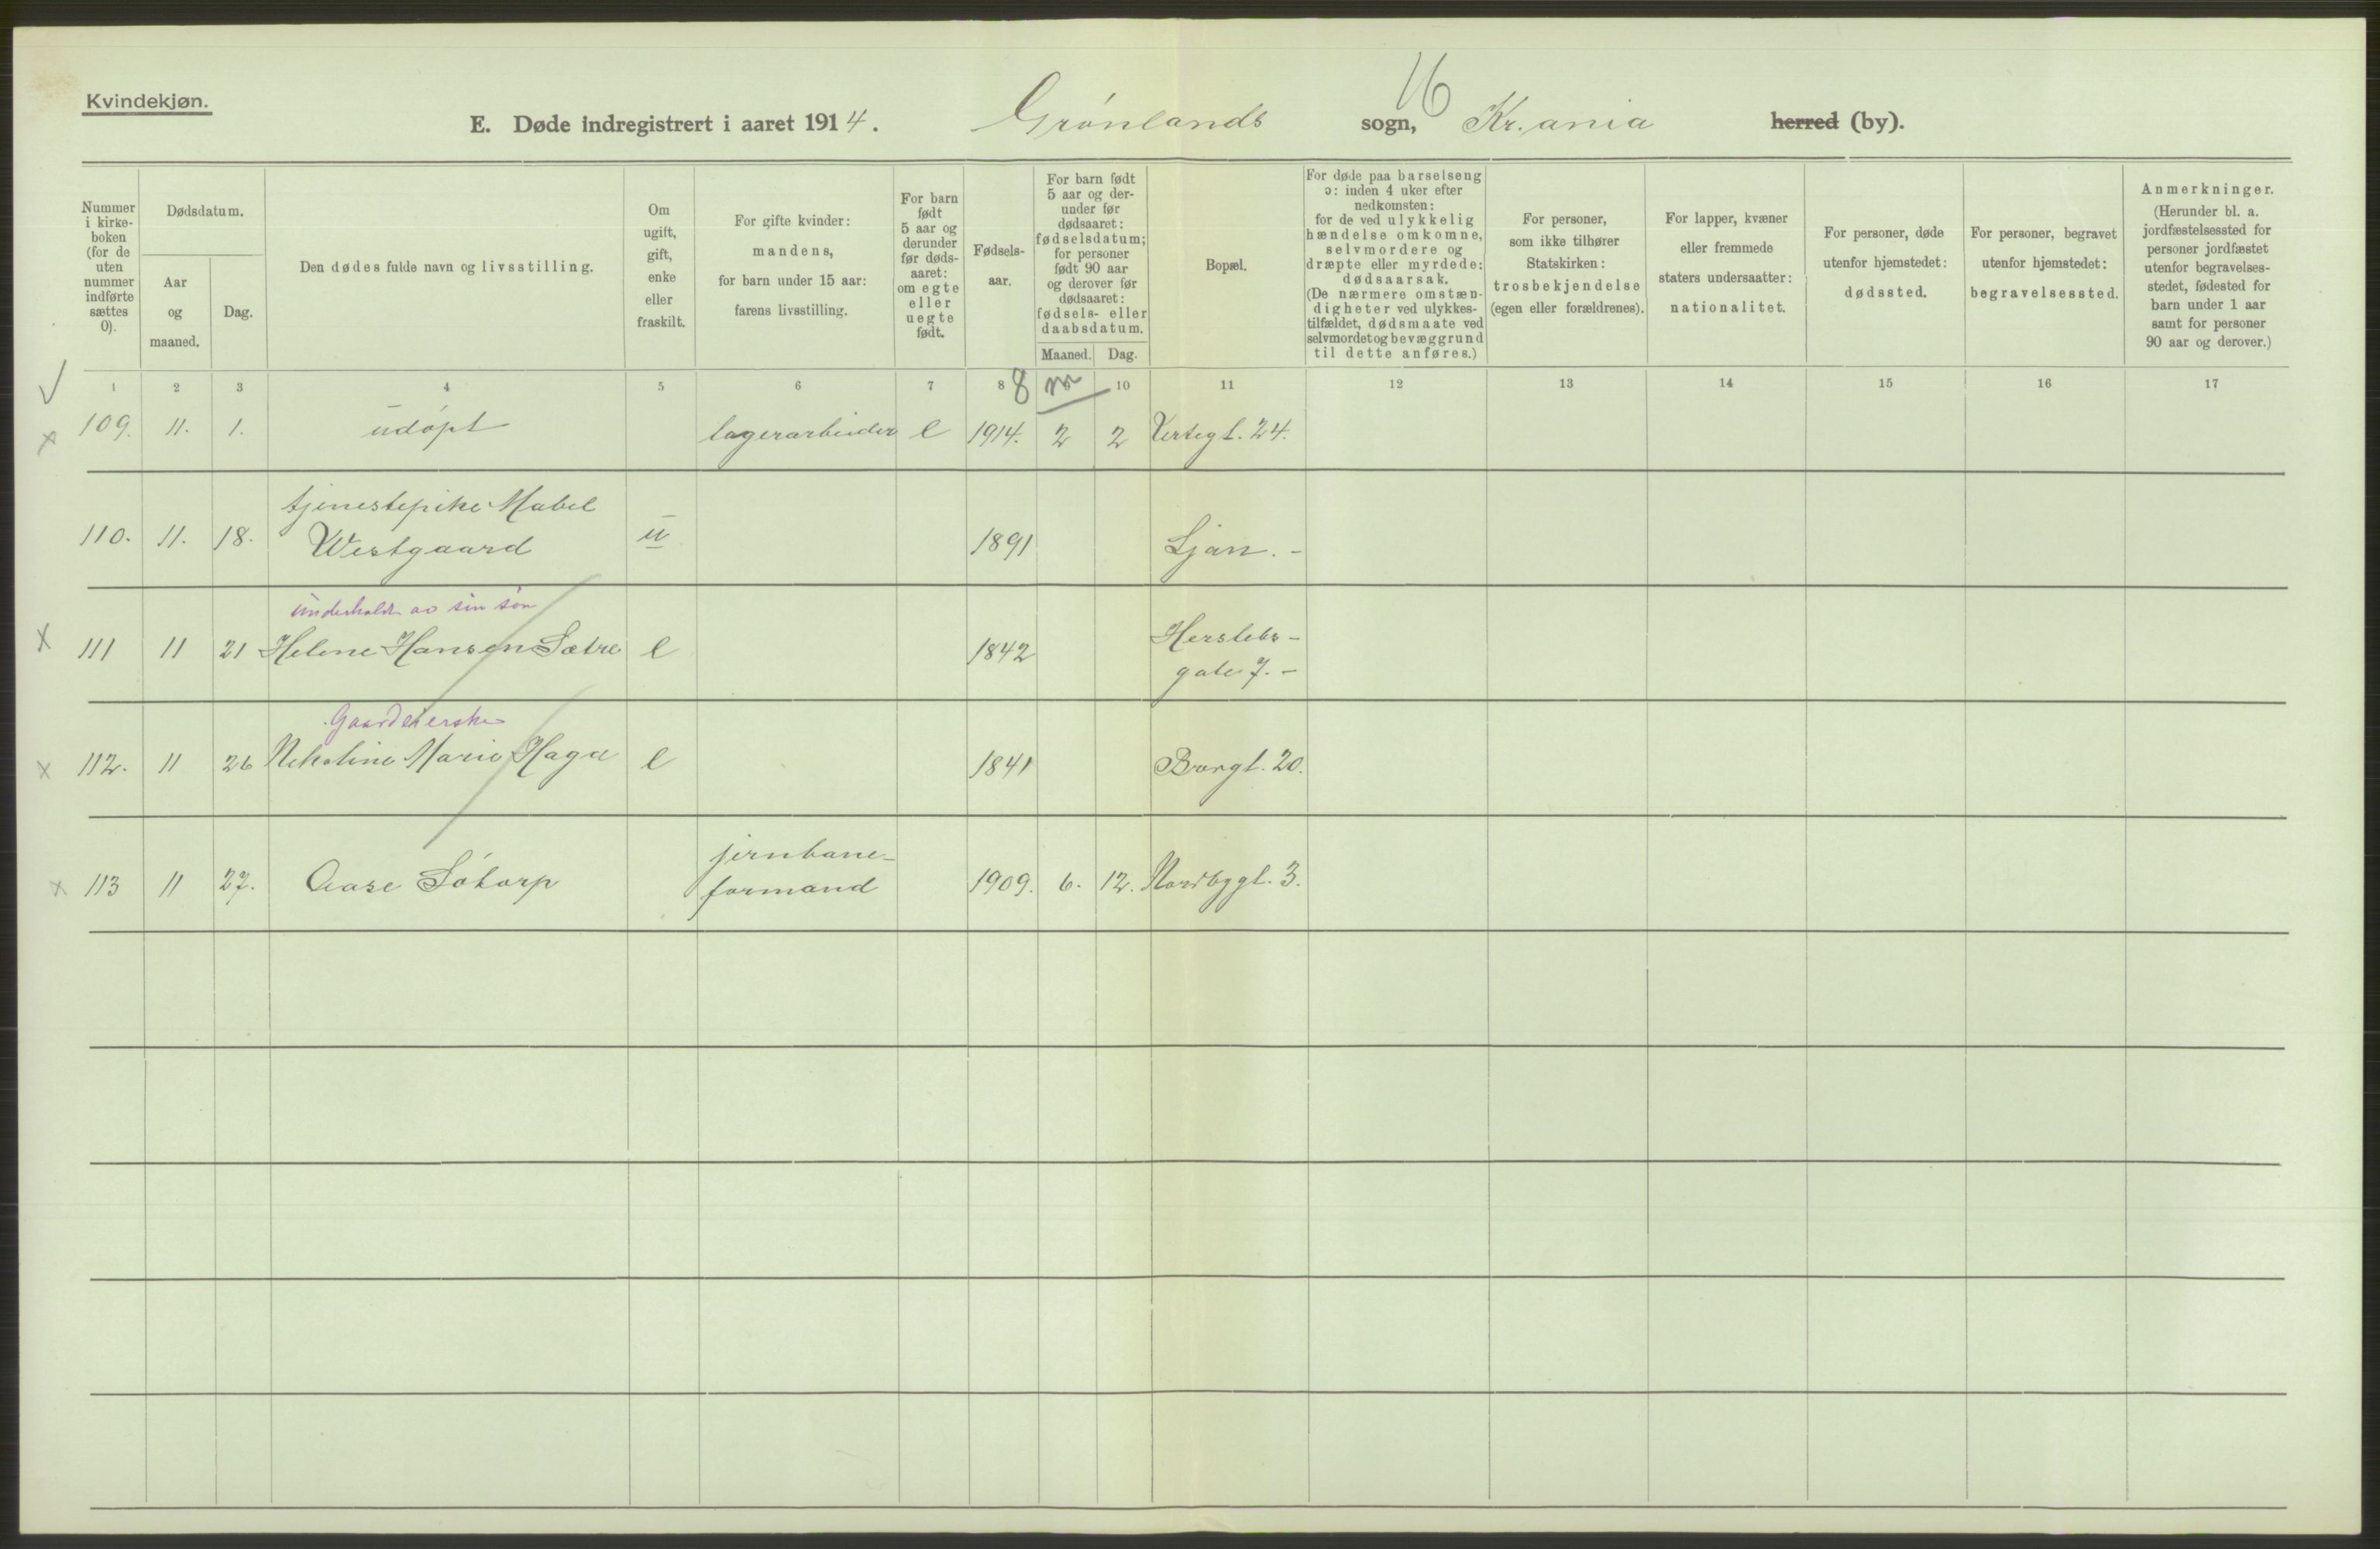 Kvindekjøn.
E. Døde indregistrert i aaret 1914. Grønlands sogn, Kr.ania herred (by).
16
Nummer i kirke-boken (for de uten nummer indførte sættes 0).
Dødsdatum.
Aar og maaned.
Dag.
Den dødes fulde navn og livsstilling.
Om ugift, gift, enke eller fraskilt.
For gifte kvinder: mandens, for barn under 15 aar: farens livsstilling.
For barn født 5 aar og derunder før døds-aaret: om egte eller uegte født.
Fødsels-aar.
For barn født 5 aar og der-under før dødsaaret: fødselsdatum; for personer født 90 aar og derover før dødsaaret: fødsels- eller daabsdatum.
Maaned. Dag.
Bopæl.
For døde paa barselseng ɔ: inden 4 uker efter nedkomsten: for de ved ulykkelig hændelse omkomne, selvmordere og dræpte eller myrdede: dødsaarsak. (De nærmere omstæn-digheter ved ulykkes-tilfældet, dødsmaate ved selvmordet og bevæggrund til dette anføres.)
For personer, som ikke tilhører Statskirken: trosbekjendelse (egen eller forældrenes).
For lapper, kvæner eller fremmede staters undersaatter: nationalitet.
For personer, døde utenfor hjemstedet: dødssted.
For personer, begravet utenfor hjemstedet: begravelsessted.
Anmerkninger. (Herunder bl. a. jordfæstelsessted for personer jordfæstet utenfor begravelses-stedet, fødested for barn under 1 aar samt for personer 90 aar og derover.)
1 2 3 4 5 6 7 8 10 11 12 13 14 15 16 17
8 m
109. 11. 1. udøpt lagerarbeider e 1914. 2 2 Vertsgt. 24.
tjenestepike Mabel
110. 11. 18. Westgaard u 1891 Ljan. -
underholdt av sin søn
111 11 21 Helene Hansen Sætre e 1842 Herslebs-
gate 7. -
Gaardeierske
112. 11 26 Nikoline Marie Haga e 1841 Borgt. 20.
jernbane-
113 11 27. Aase Søtorp formand 1909. 6. 12. Nordbygt. 3.